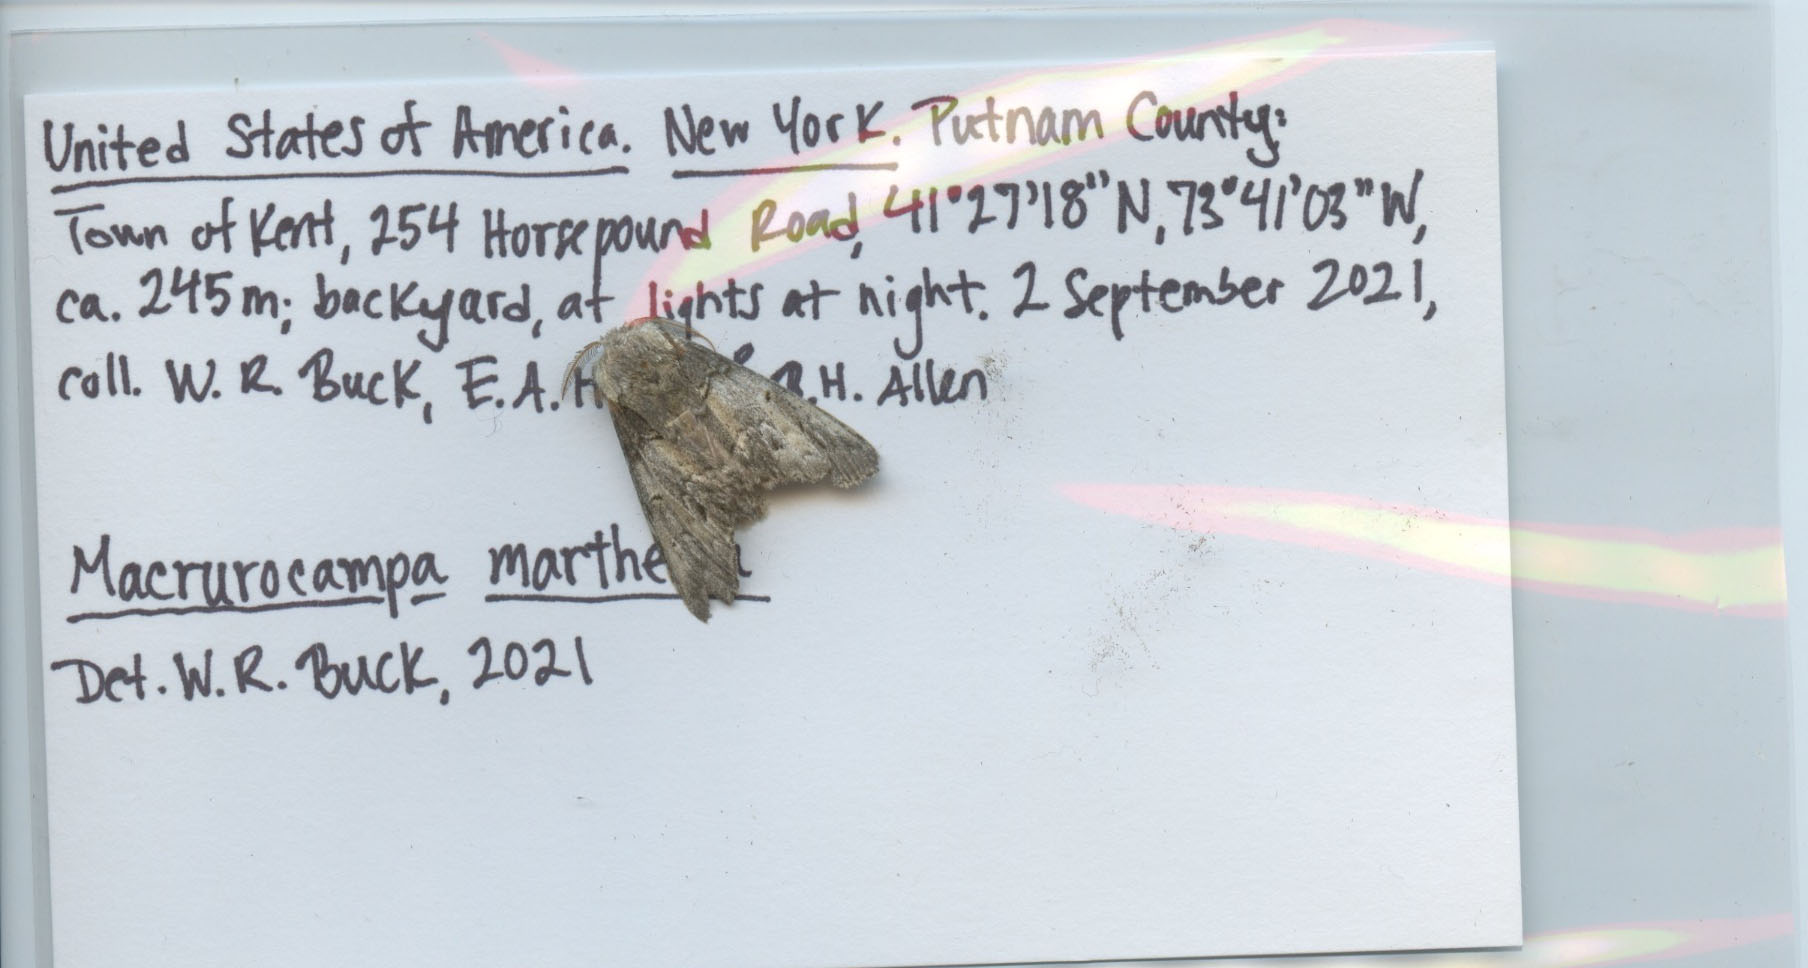 United States of America. New York. Putnam County:
Town of Kent, 254 Horsepound Road, 41°27'18"N, 73°41'03"W,
ca. 245m; backyard, at lights at night. 2 September 2021,
coll. W. R. Buck, E.A. H. Allen
Macrurocampa
Det. W.R. Buck, 2021